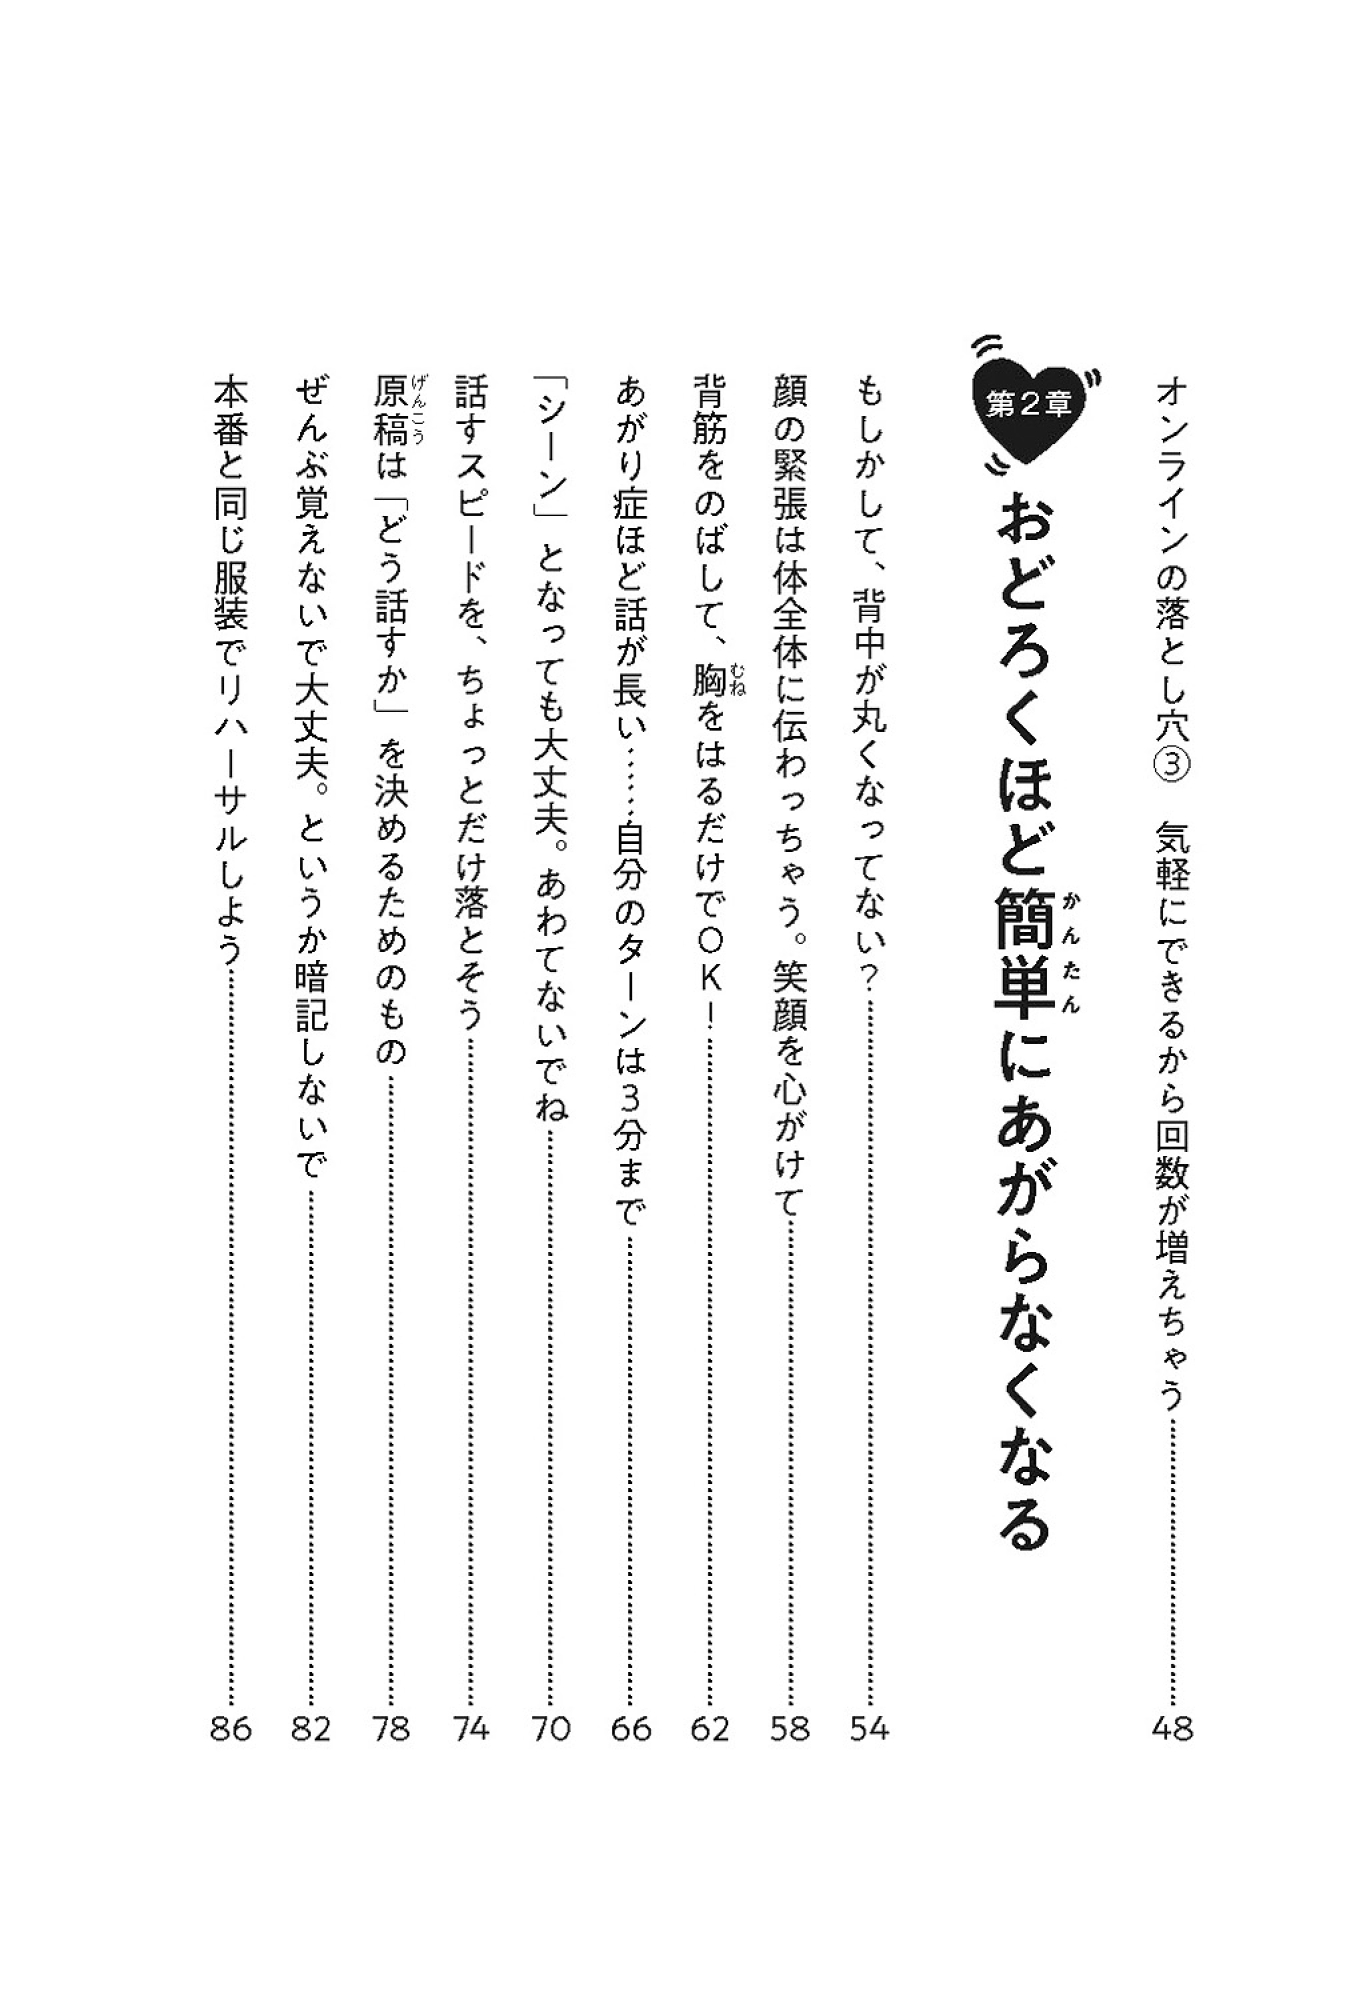 オンラインの落とし穴③　気軽にできるから回数が増えちゃう 48
第2章 おどろくほど簡単にあがらなくなる
かんたん
もしかして、背中が丸くなってない？ 54
顔の緊張は体全体に伝わっちゃう。笑顔を心がけて 58
背筋をのばして、胸をはるだけでOK！ 62
むね
あがり症ほど話が長い……自分のターンは3分まで 66
「シーン」となっても大丈夫。あわてないでね 70
話すスピードを、ちょっとだけ落とそう 74
原稿は「どう話すか」を決めるためのもの 78
げんこう
ぜんぶ覚えないで大丈夫。というか暗記しないで 82
本番と同じ服装でリハーサルしよう 86